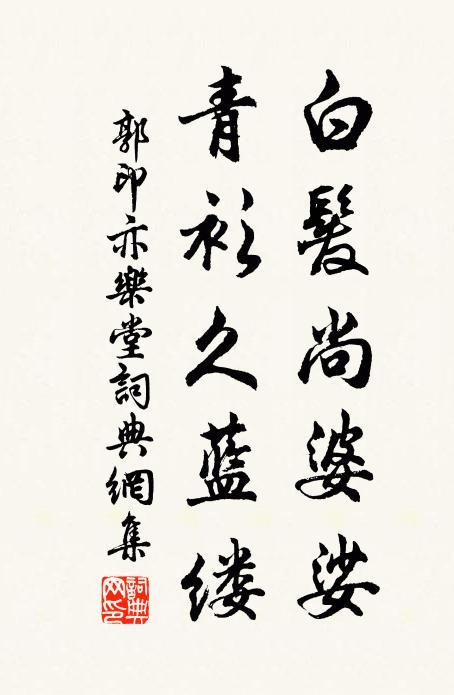 白髮尚婆娑
青衫久藍缕
郭印亦樂堂詞典網集
詞典網印